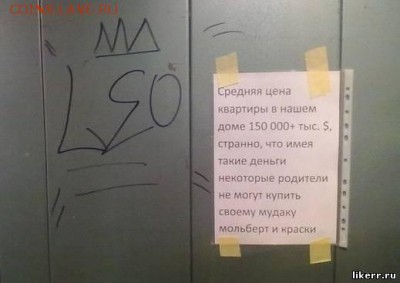 LEO
Средняя цена
квартиры в нашем
доме 150 000+ тыс. $,
странно, что имея
такие деньги
некоторые родители
не могут купить
своему мудаку
мольберт и краски
likerr.ru